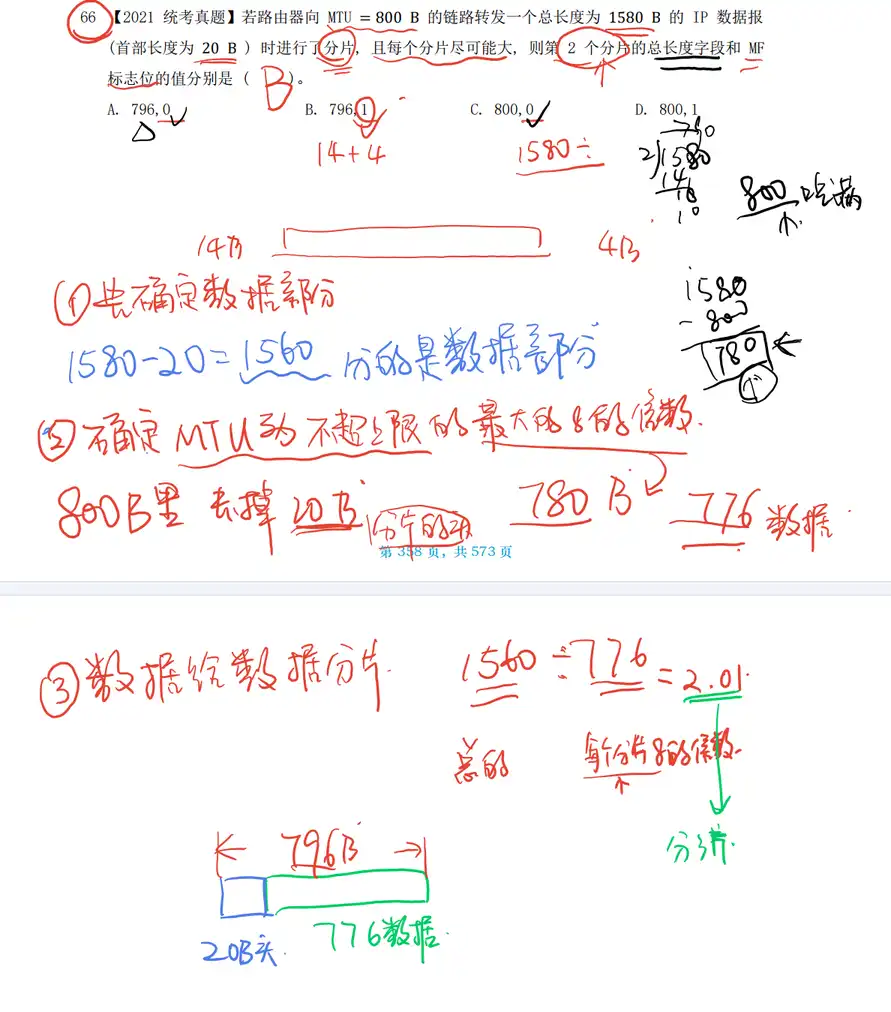 66 【2021 统考真题】若路由器向 MTU = 800 B 的链路转发一个总长度为 1580 B 的 IP 数据报
(首部长度为 20 B ) 时进行了分片, 且每个分片尽可能大, 则第 2 个分片的总长度字段和 MF
标志位的值分别是 ( B )。
A. 796,0 B. 796,1 C. 800,0 D. 800,1
14+4 1580÷
2 1580
800 吃满
14B 4B
1580
-800
780
① 先确定数据部分
1580-20=1560 分的是数据部分
② 确定 MTU 为不超上限的最大的8的倍数.
800B里 去掉 20B 分片的头 780B 776 数据
第 358 页，共 573 页
③ 数据给数据分片. 1560÷776=2.01.
总的 每个分片8的倍数.
分3片.
796B
20B头. 776数据.